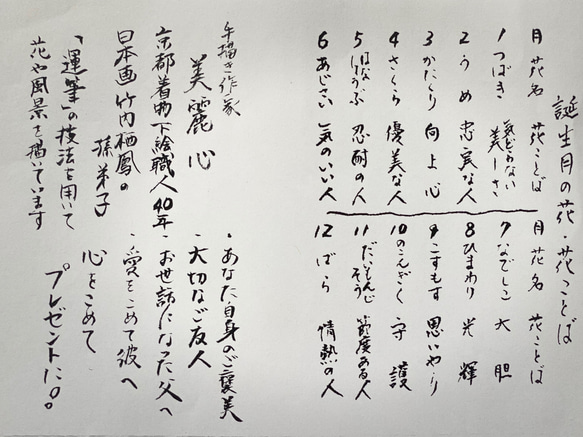 誕生月の花・花ことば
月 花名 花ことば
1 つばき 気どらない美しさ
2 うめ 忠実な人
3 かたくり 向上心
4 さくら 優美な人
5 はなしょうぶ 忍耐の人
6 あじさい 気のいい人
月 花名 花ことば
7 なでしこ 大胆
8 ひまわり 光輝
9 こすもす 思いやり
10 のこんぎく 守護
11 だいもんじそう 節度ある人
12 ばら 情熱の人
手描き作家
美麗 心
京都着物下絵職人40年
日本画竹内栖鳳の
孫弟子
「運筆」の技法を用いて
花や風景を描いています
・あなた自身のご褒美
・大切なご友人
・お世話になった父へ
・愛をこめて彼へ
心をこめて
プレゼントに。